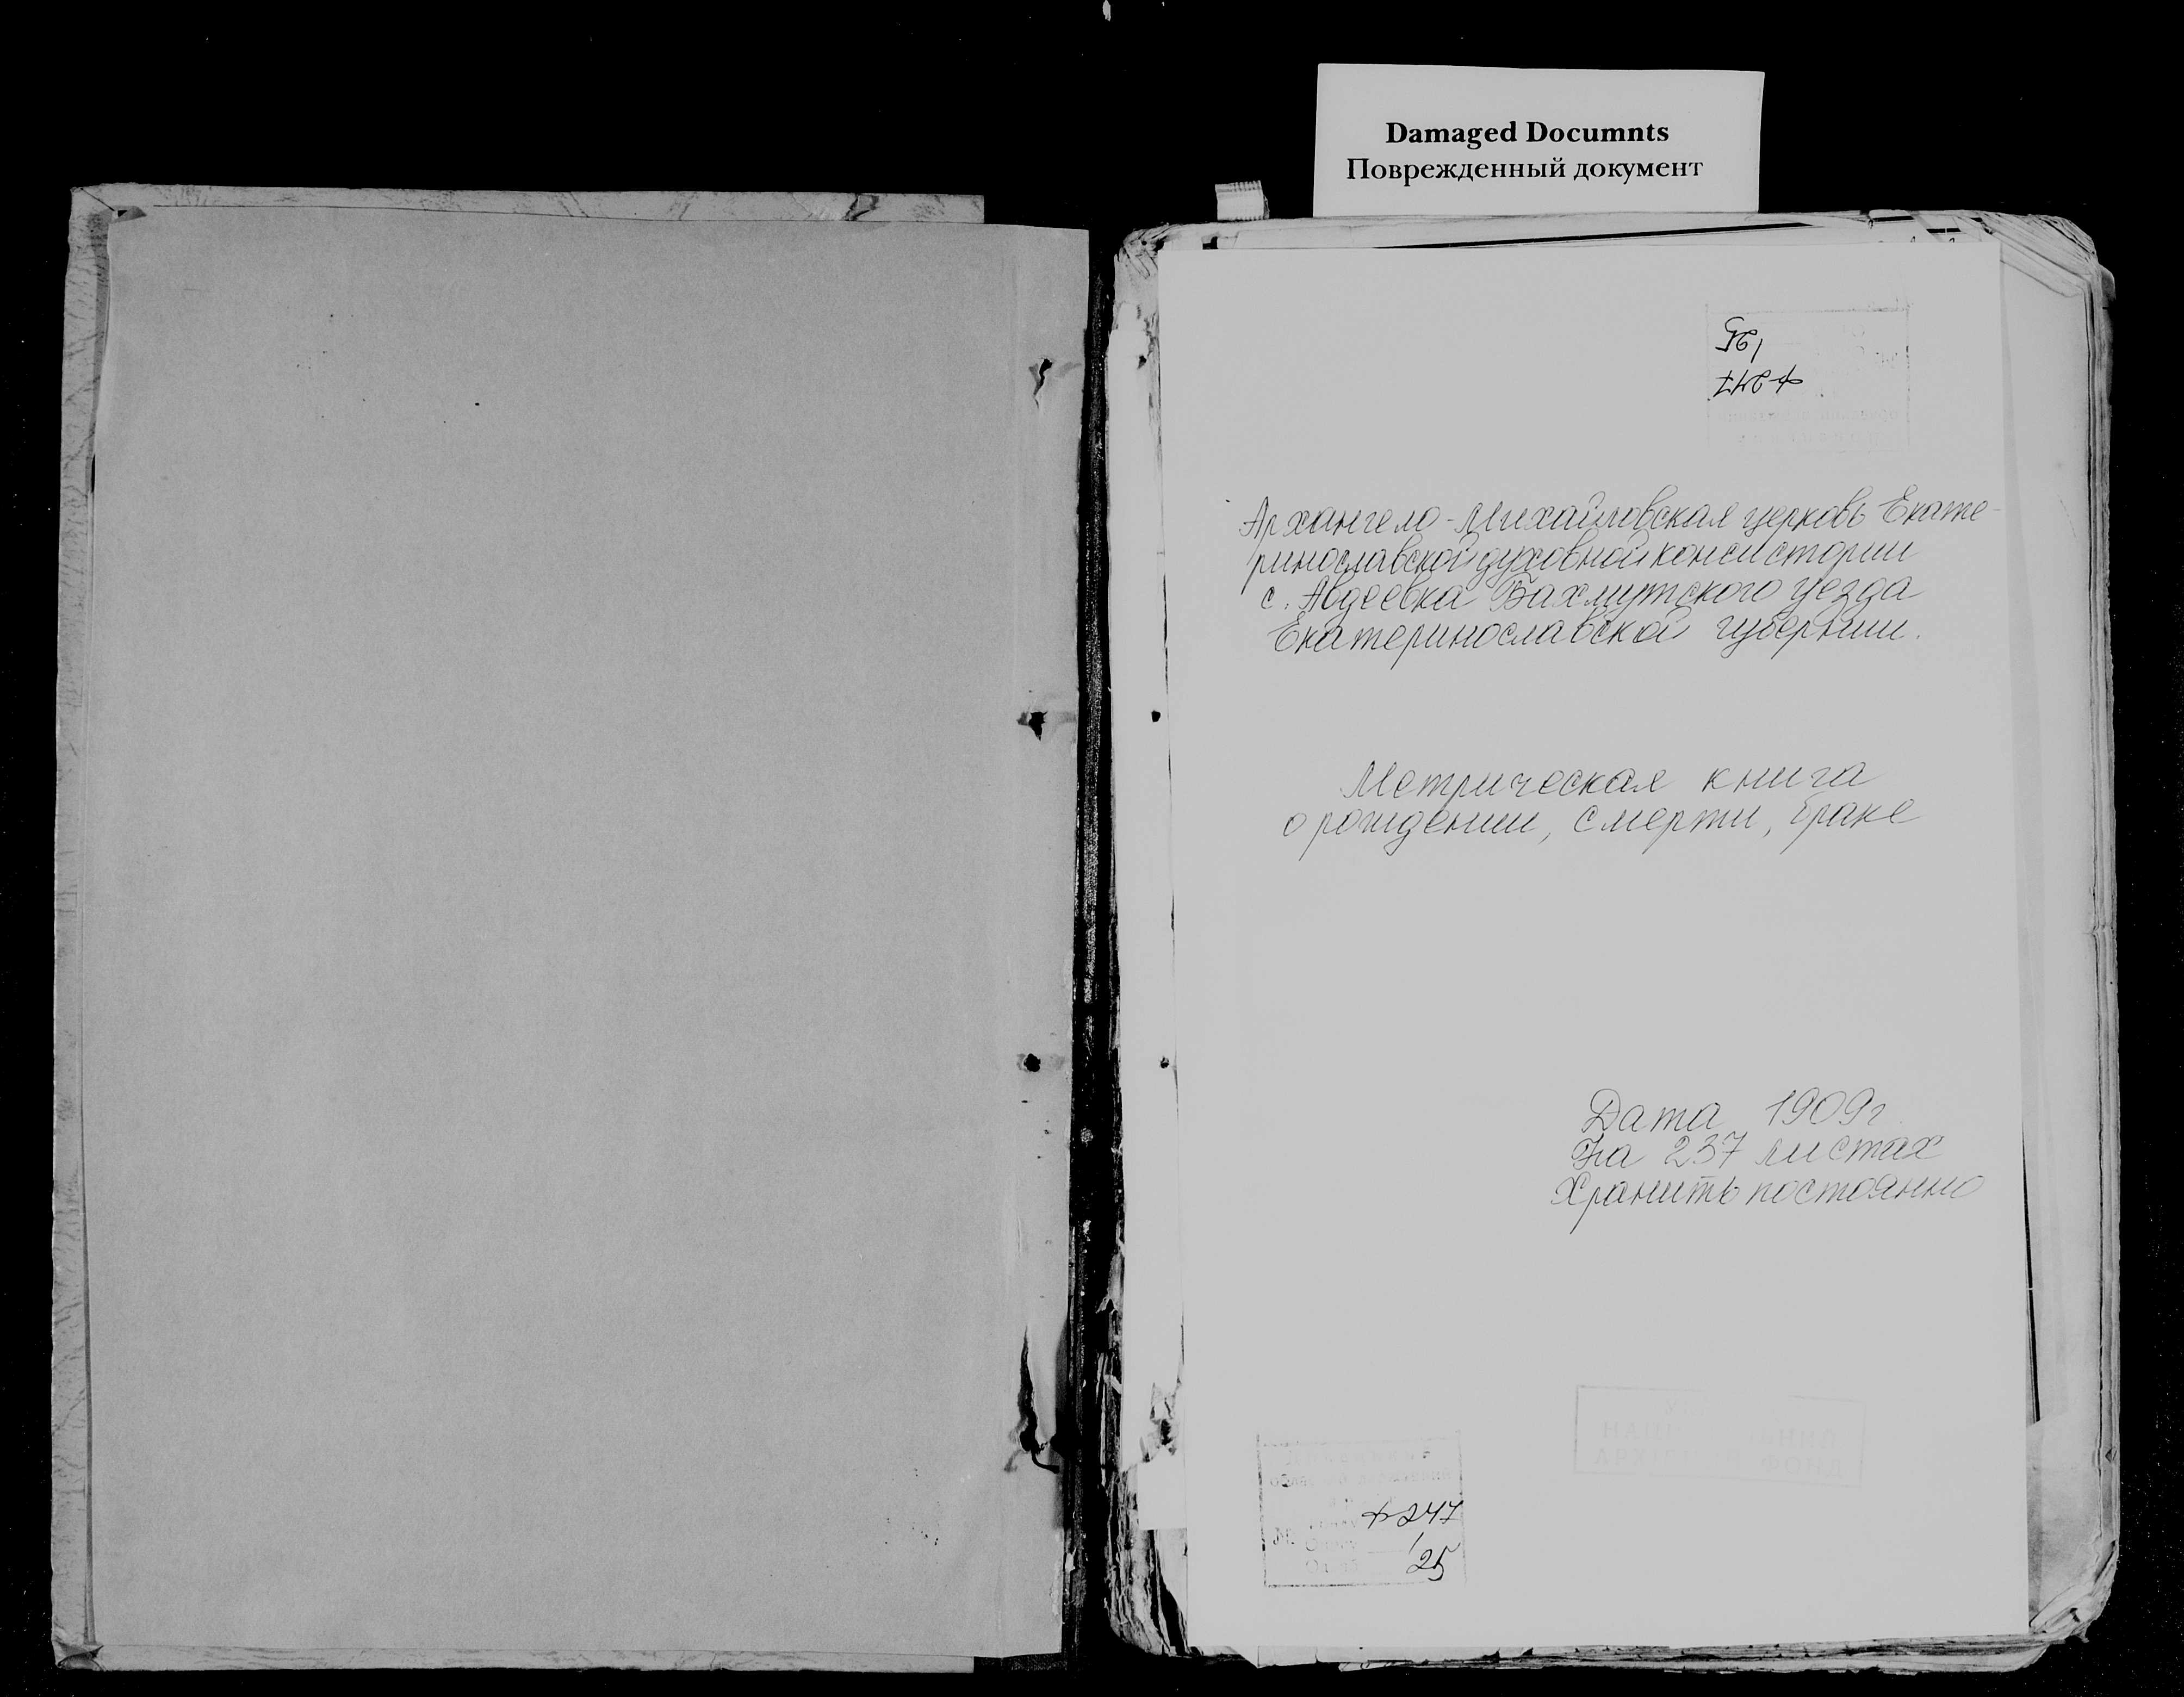 Damaged Documnts
Поврежденный документ
Ф247
1
25
Архангело-Михайловская церковь Екате-
ринославской духовной консистории
с. Авдеевка Бахмутского уезда
Екатеринославской губернии.
Метрическая книга
о рождении, смерти, браке
Дата 1909г
На 237 листах
Хранить постоянно
Ф247
1
25